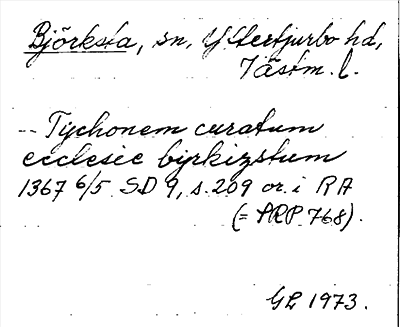 Björksta, sn, Yttertjurbo hd,
Västm. l.
-- Tychonem curatum
ecclesie byrkizstum
1367 6/5 SD 9, s. 209 or. i RA
(= PRP 768).
GL 1973.